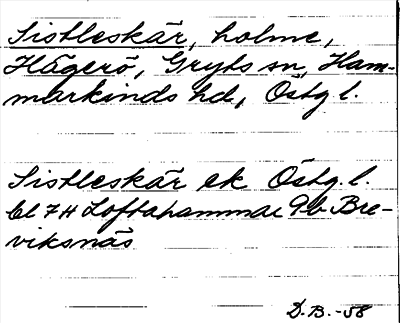 Sistleskär, holme,
Hägerö, Gryts sn, Ham-
markinds hd, Östg l.
Sistleskär ek Östg. l.
bl 7H Loftahammar 9b Bre-
viksnäs
D.B. -58